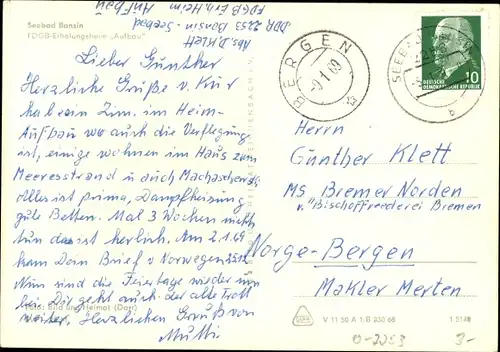 Seebad Bansin
FDGB-Erholungsheim „Aufbau"
Abs. D. Klett
DDR 2253 Bansin Seebad
FDGB Erh. Heim Aufbau
Lieber Günther
Herzliche Grüße v. Kur
habe ein Zim. im Heim-
Aufbau wo auch die Verflegung
ist, einige wohnen im Haus zum
Meeresstrand u. auch
Alles ist prima, Dampfheizung
gute Betten. Mal 3 Wochen nichts
tun das ist herlich. Am 2.1.69
kam Dein Brief v. Norwegen
Nun sind die Feiertage wieder
bei. Dir geht auch der alte Trott
weiter, Herzlichen Gruß von
Mutti
Foto: Bild und Heimat (Darr)
BERGEN
-9.1.69
SEEBAD
b
10
DEUTSCHE
DEMOKRATISCHE REPUBLIK
Herrn
Günther Klett
MS Bremer Norden
v. "Bischoffreederei Bremen
Norge-Bergen
Makler Merten
V 11 50 A 1/B 230 68
1 5148
0-2253
3-